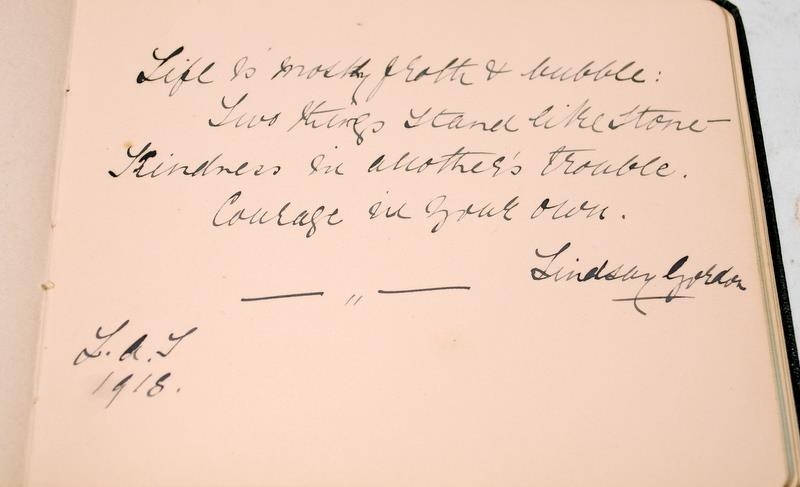 Life is mostly froth & bubble:
Two things stand like stone—
Kindness in another's trouble.
Courage in your own.
Lindsay Gordon
— " —
L.A.S
1918.